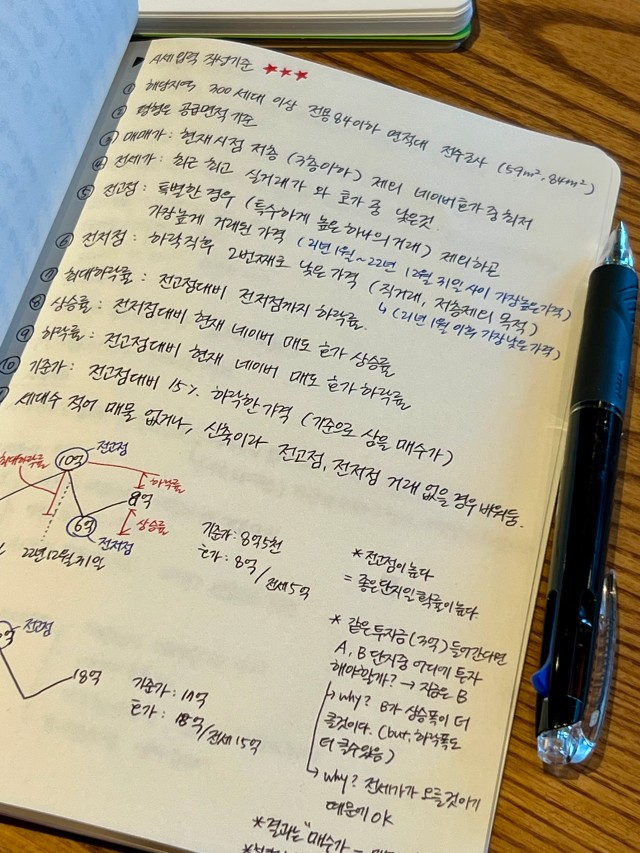 ▶ 시세입력 작성기준 ★★★
① 해당지역 300세대 이상 전용 84이하 면적대 전수조사 (59m², 84m²)
② 평형은 공급면적 기준
③ 매매가 : 현재시점 저층 (3층이하) 제외 네이버 호가 중 최저
④ 전세가 : 최근 최고 실거래가 와 호가 중 낮은것.
⑤ 전고점 : 특별한 경우 (특수하게 높은 하나의 거래) 제외하고
가장높게 거래된 가격 (21년 1월~22년 12월 31일 사이 가장높은가격)
⑥ 전저점 : 하락직후 2번째로 낮은 가격 (직거래, 저층제외 목적)
↳ (21년 1월 이후 가장 낮은가격)
⑦ 최대하락률 : 전고점대비 전저점까지 하락률.
⑧ 상승률 : 전저점대비 현재 네이버 매도 호가 상승률
⑨ 하락률 : 전고점대비 현재 네이버 매도 호가 하락률
⑩ 기준가 : 전고점대비 15% 하락한 가격 (기준으로 삼을 매수가)
세대수 적어 매물 없거나, 신축이라 전고점, 전저점 거래 없을 경우 비워둠.
최대하락률
10억
전고점
하락률
8억
6억
상승률
전저점
22년 12월 31일
기준가 : 8억5천
호가 : 8억/전세5억
* 전고점이 높다
= 좋은 단지일 확률이 높다.
전고점
18억
기준가 : 17억
호가 : 18억/전세 15억
* 같은 투자금(3억) 들어간다면
A, B 단지중 어디에 투자
해야할까? → 지금은 B
↳ why? B가 상승폭이 더
클것이다. (but, 하락폭도
더 클수있음)
↳ why? 전세가가 오를것이기
때문에 OK
* 결과는 "매수가 –